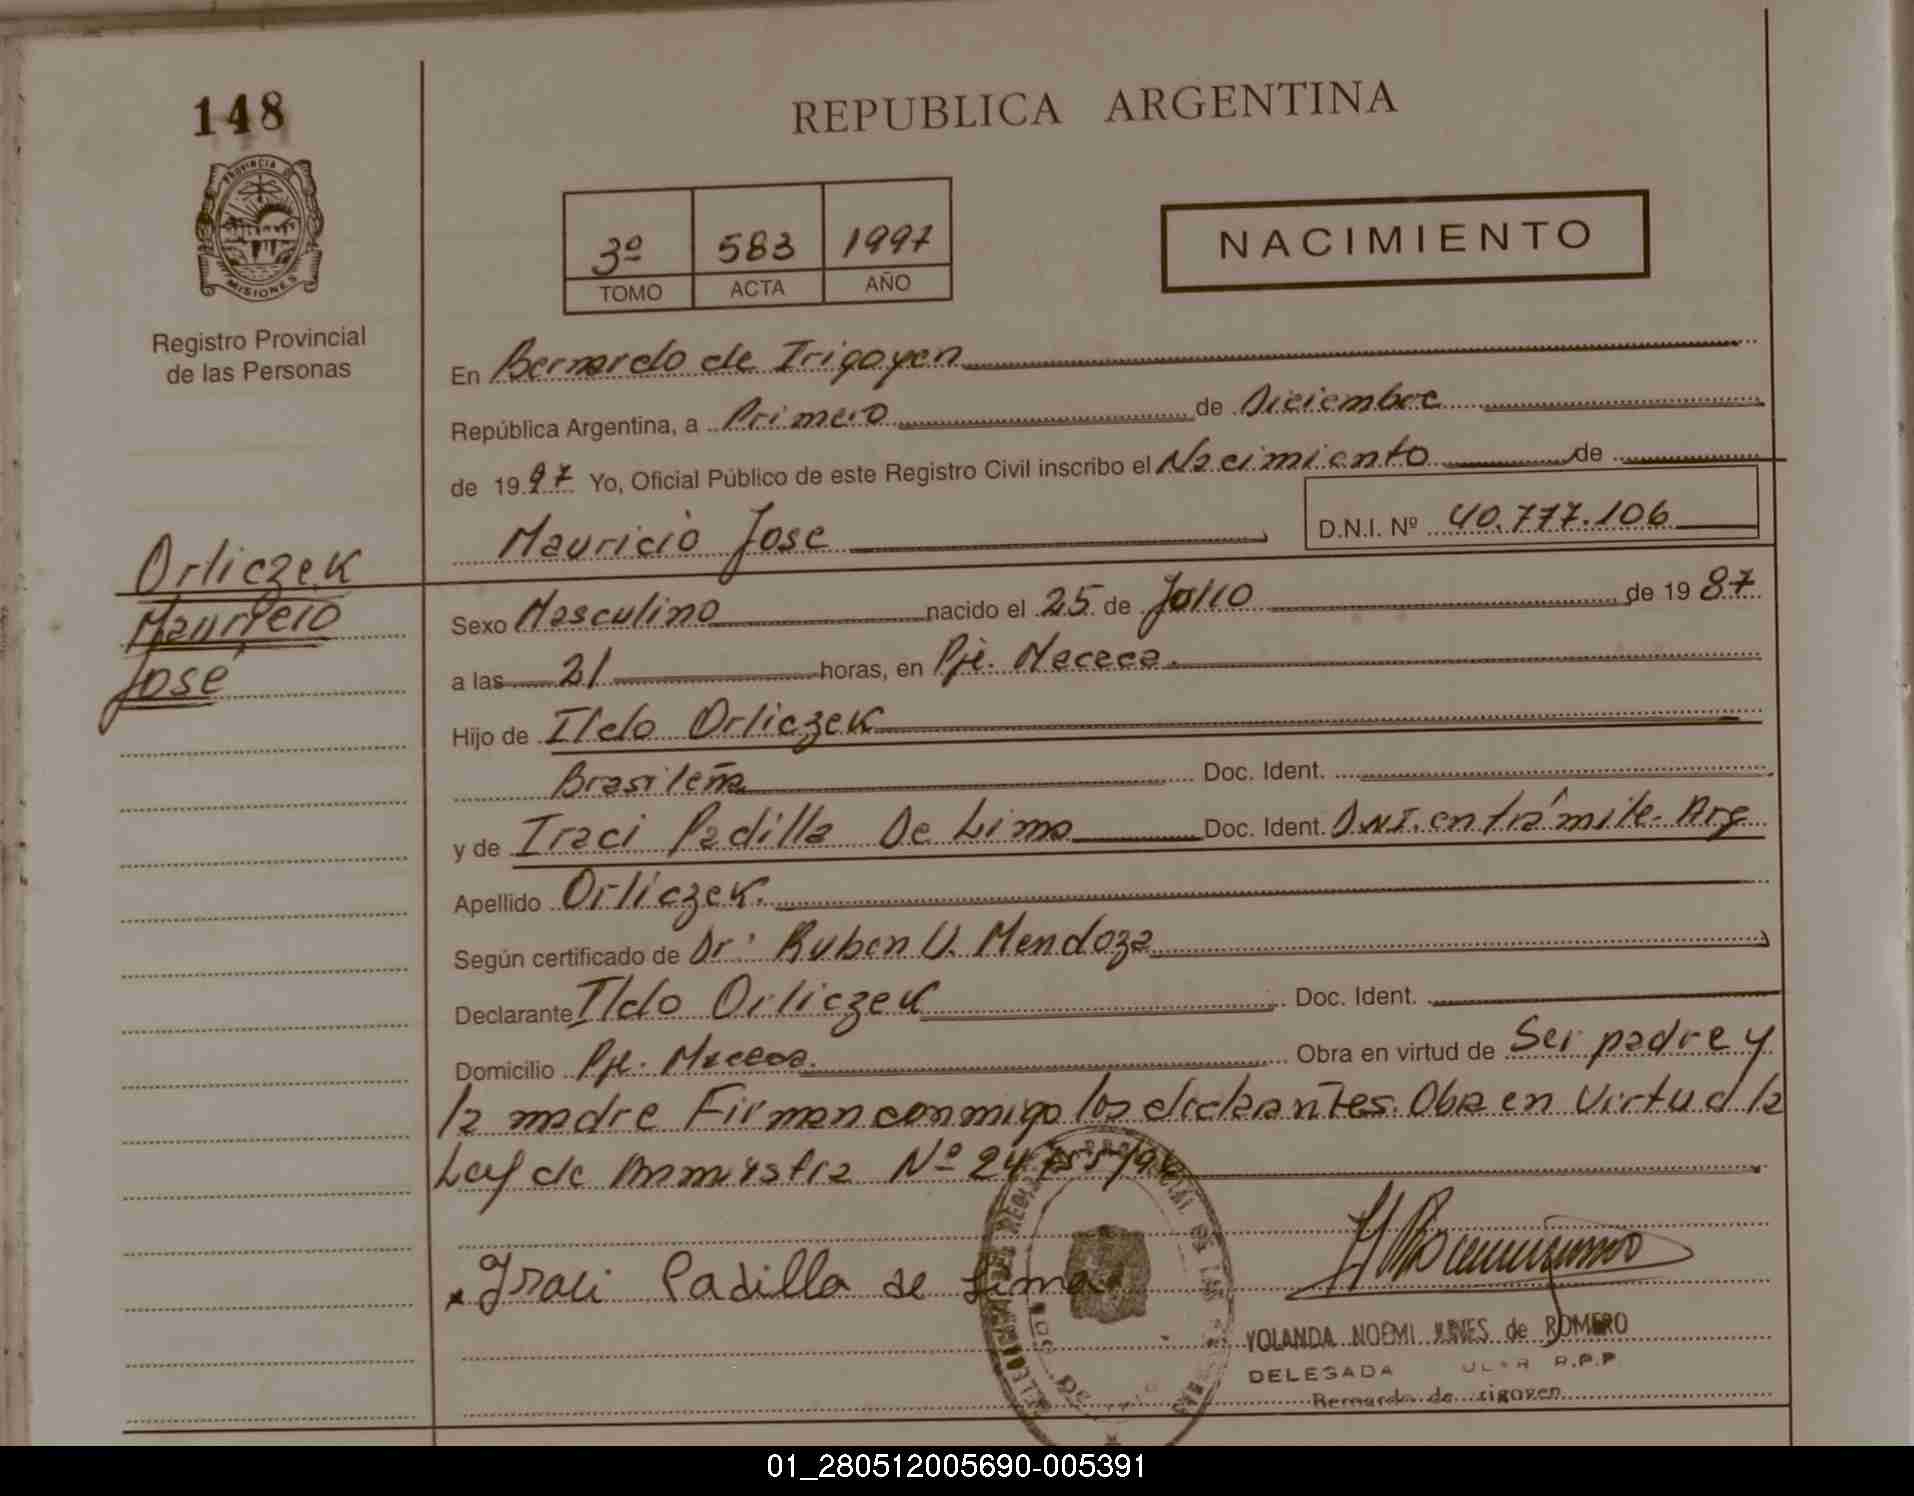 148
PROVINCIA DE
MISIONES
Registro Provincial
de las Personas
REPUBLICA ARGENTINA
3º 583 1997
TOMO ACTA AÑO
NACIMIENTO
En Bernardo de Irigoyen
República Argentina, a Primero de Diciembre
de 1997 Yo, Oficial Público de este Registro Civil inscribo el Nacimiento de
Mauricio Jose D.N.I. Nº 40.777.106
Orliczek
Mauricio
José
Sexo Masculino nacido el 25 de Julio de 1987
a las 21 horas, en Pje. Macaca.
Hijo de Ildo Orliczek
Brasileña Doc. Ident.
y de Iraci Padilla De Lima Doc. Ident. D.N.I. en trámite. Arg
Apellido Orliczek.
Según certificado de Dr: Ruben U. Mendoza
Declarante Ildo Orliczek Doc. Ident.
Domicilio Pje. Macaca. Obra en virtud de Ser padre y
la madre Firman conmigo los declarantes. Obra en Virtud la
Ley de Amnistia Nº 24.755/96
Iraci Padilla de Lima
YOLANDA NOEMI de ROMERO
DELEGADA R.P.P
Bernardo de Irigoyen
01_280512005690-005391